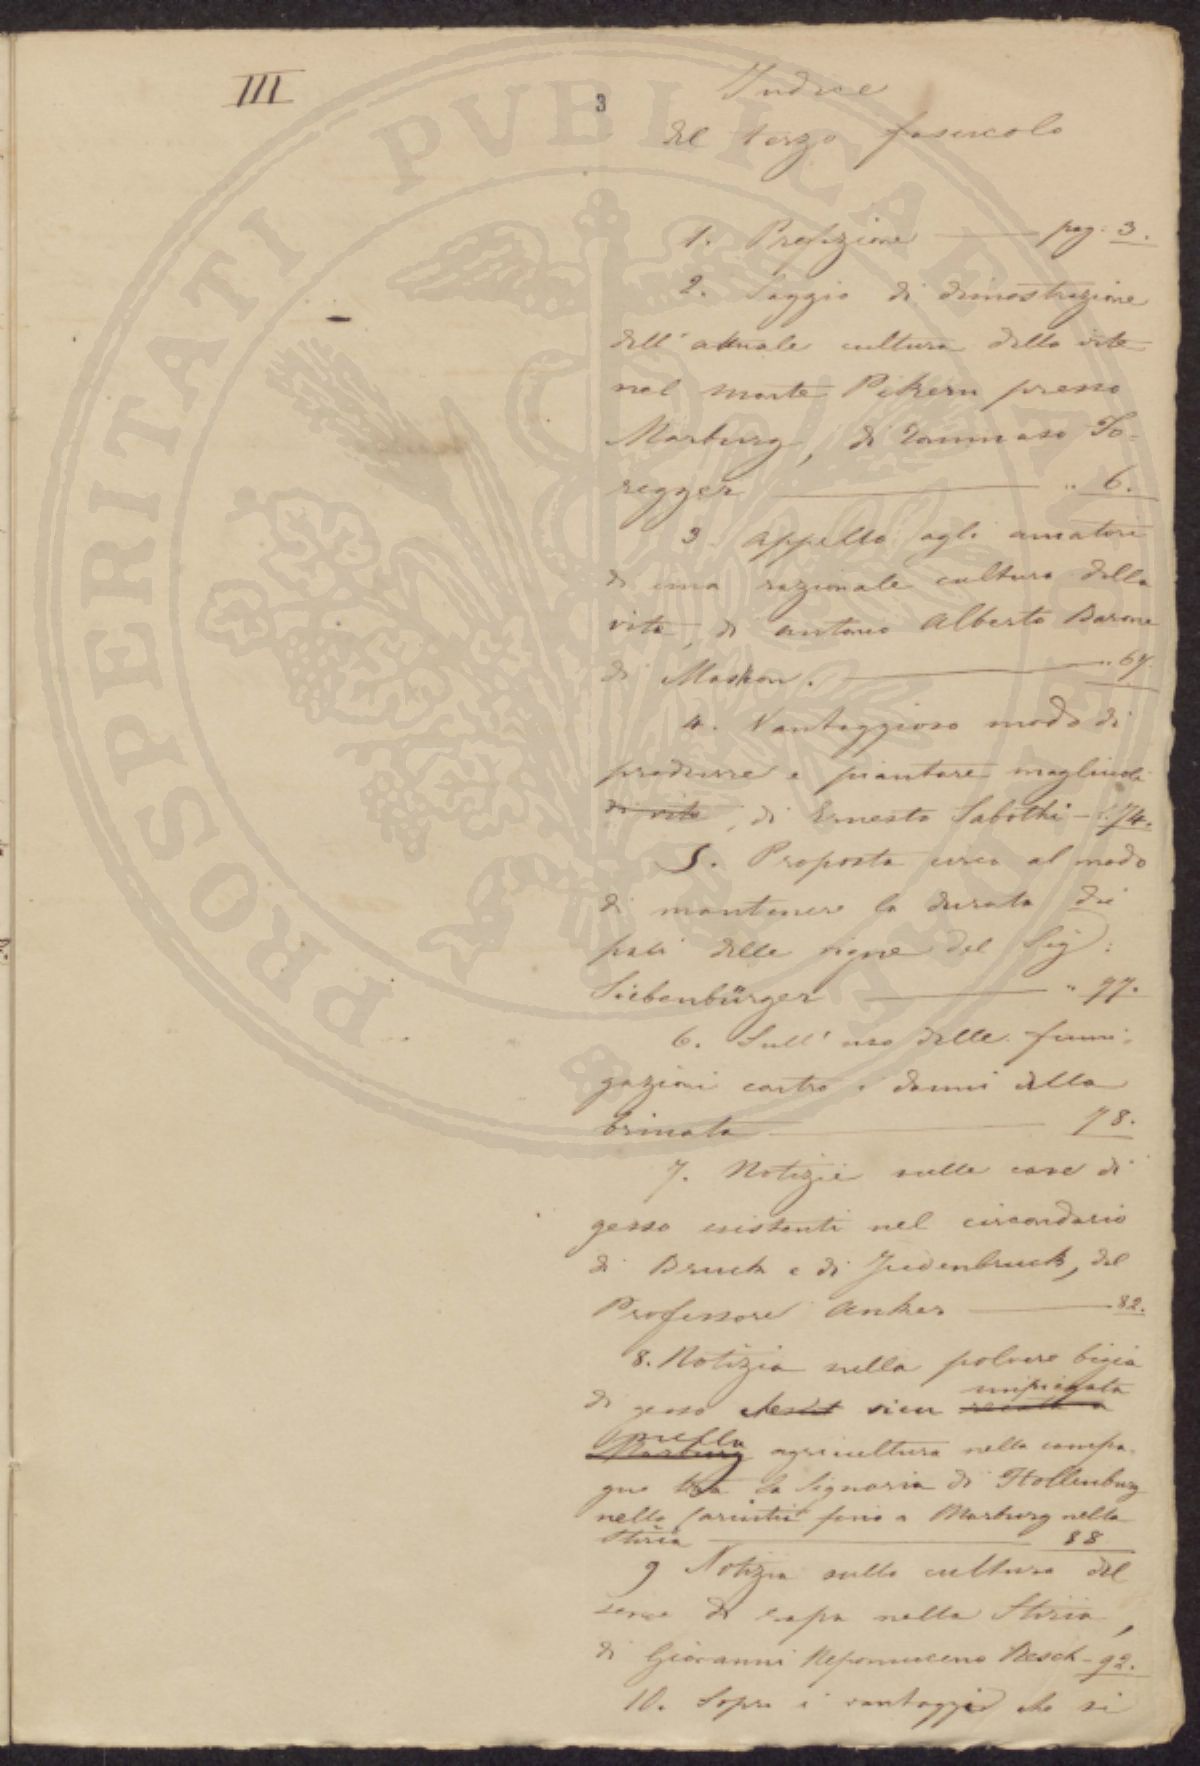 III
3
Indice
del terzo fascicolo
1. Prefazione pag: 3.
2. Saggio di dimostrazione
dell'attuale cultura della vite
nel monte Pikern presso
Marburg, di Tommaso To-
regger " 6.
3 Appello agli amatori
di una razionale cultura della
vite, di Antonio Alberto Barone
di Maskon. " 67.
4. Vantaggioso modo di
produrre e piantare magliuoli
di vite, di Ernesto Sabothi - " 74.
5. Proposta circa al modo
di mantenere la durata dei
pali delle vigne del Sig:
Siebenbürger " 77.
6. Sull'uso delle fumi-
gazioni contro i danni della
brinata 78.
7. Notizie sulle cave di
gesso esistenti nel circondario
di Bruck e di Judenbruck, del
Professore Anker 82.
8. Notizia sulla polvere bigia
di gesso vien impiegata
nella agricultura nella campa-
gna tra la Signoria di Hollenburg
nella Carintia fino a Marburg nella
Stiria 88
9 Notizia sulla cultura del
seme di rapa nella Stiria,
di Giovanni Nepomuceno Resch - 92.
10. Sopra i vantaggi che si
PROSPERITATI PVBLICAE